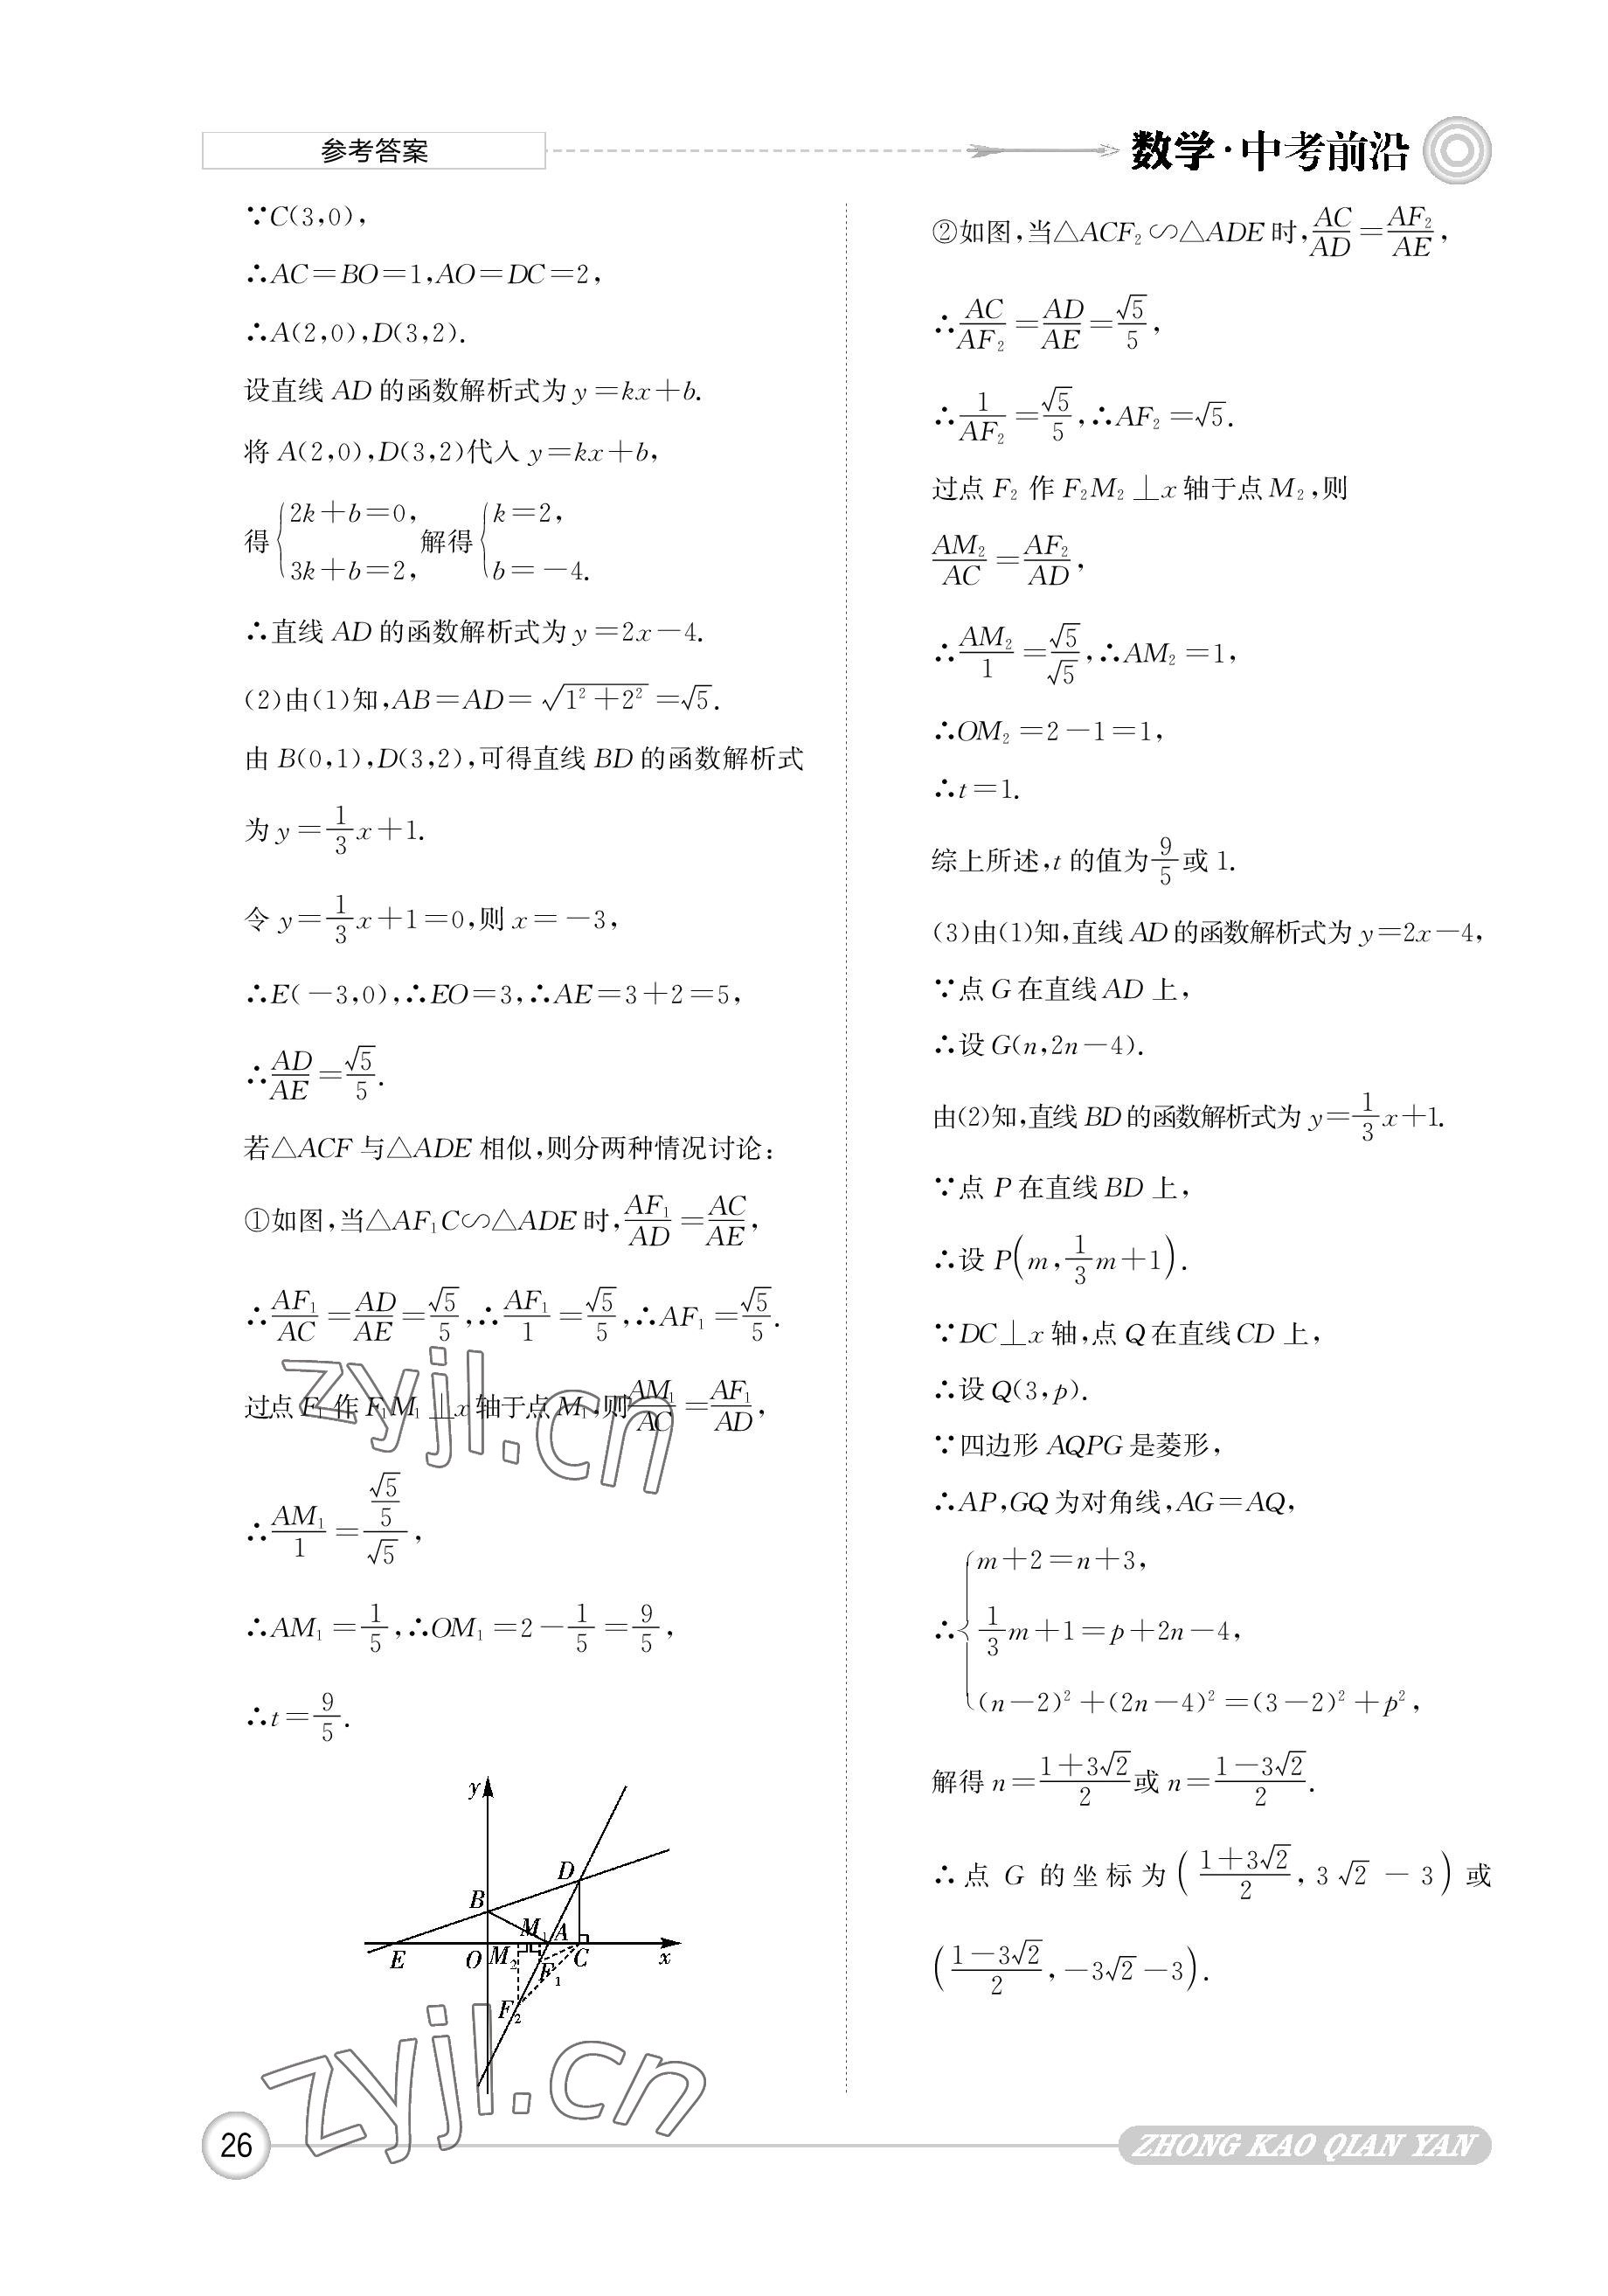 参考答案
数学·中考前沿
∵C(3,0),
∴AC=BO=1,AO=DC=2,
∴A(2,0),D(3,2).
设直线 AD 的函数解析式为 y=kx+b.
将 A(2,0),D(3,2)代入 y=kx+b,
得{2k+b=0, 3k+b=2, 解得{k=2, b=-4.
∴直线 AD 的函数解析式为 y=2x-4.
(2)由(1)知,AB=AD=√(1²+2²)=√5.
由 B(0,1),D(3,2),可得直线 BD 的函数解析式
为 y=1/3 x+1.
令 y=1/3 x+1=0,则 x=-3,
∴E(-3,0),∴EO=3,∴AE=3+2=5,
∴AD/AE=√5/5.
若△ACF 与△ADE 相似,则分两种情况讨论:
①如图,当△AF₁C∽△ADE 时,AF₁/AD=AC/AE,
∴AF₁/AC=AD/AE=√5/5,∴AF₁/1=√5/5,∴AF₁=√5/5.
过点 F₁ 作 F₁M₁⊥x 轴于点 M₁,则AM₁/AC=AF₁/AD,
∴AM₁/1=(√5/5)/√5,
∴AM₁=1/5,∴OM₁=2-1/5=9/5,
∴t=9/5.
y
D
B
M₁
A
E
O
M₂
C
x
F₁
F₂
②如图,当△ACF₂∽△ADE 时,AC/AD=AF₂/AE,
∴AC/AF₂=AD/AE=√5/5,
∴1/AF₂=√5/5,∴AF₂=√5.
过点 F₂ 作 F₂M₂⊥x 轴于点 M₂,则
AM₂/AC=AF₂/AD,
∴AM₂/1=√5/√5,∴AM₂=1,
∴OM₂=2-1=1,
∴t=1.
综上所述,t 的值为9/5或 1.
(3)由(1)知,直线 AD 的函数解析式为 y=2x-4,
∵点 G 在直线 AD 上,
∴设 G(n,2n-4).
由(2)知,直线 BD 的函数解析式为 y=1/3 x+1.
∵点 P 在直线 BD 上,
∴设 P(m,1/3 m+1).
∵DC⊥x 轴,点 Q 在直线 CD 上,
∴设 Q(3,p).
∵四边形 AQPG 是菱形,
∴AP,GQ 为对角线,AG=AQ,
∴{m+2=n+3,
1/3 m+1=p+2n-4,
(n-2)²+(2n-4)²=(3-2)²+p²,
解得 n=(1+3√2)/2或 n=(1-3√2)/2.
∴点 G 的坐标为((1+3√2)/2, 3√2-3)或
((1-3√2)/2,-3√2-3).
zyjl.cn
zyjl.cn
26
ZHONG KAO QIAN YAN